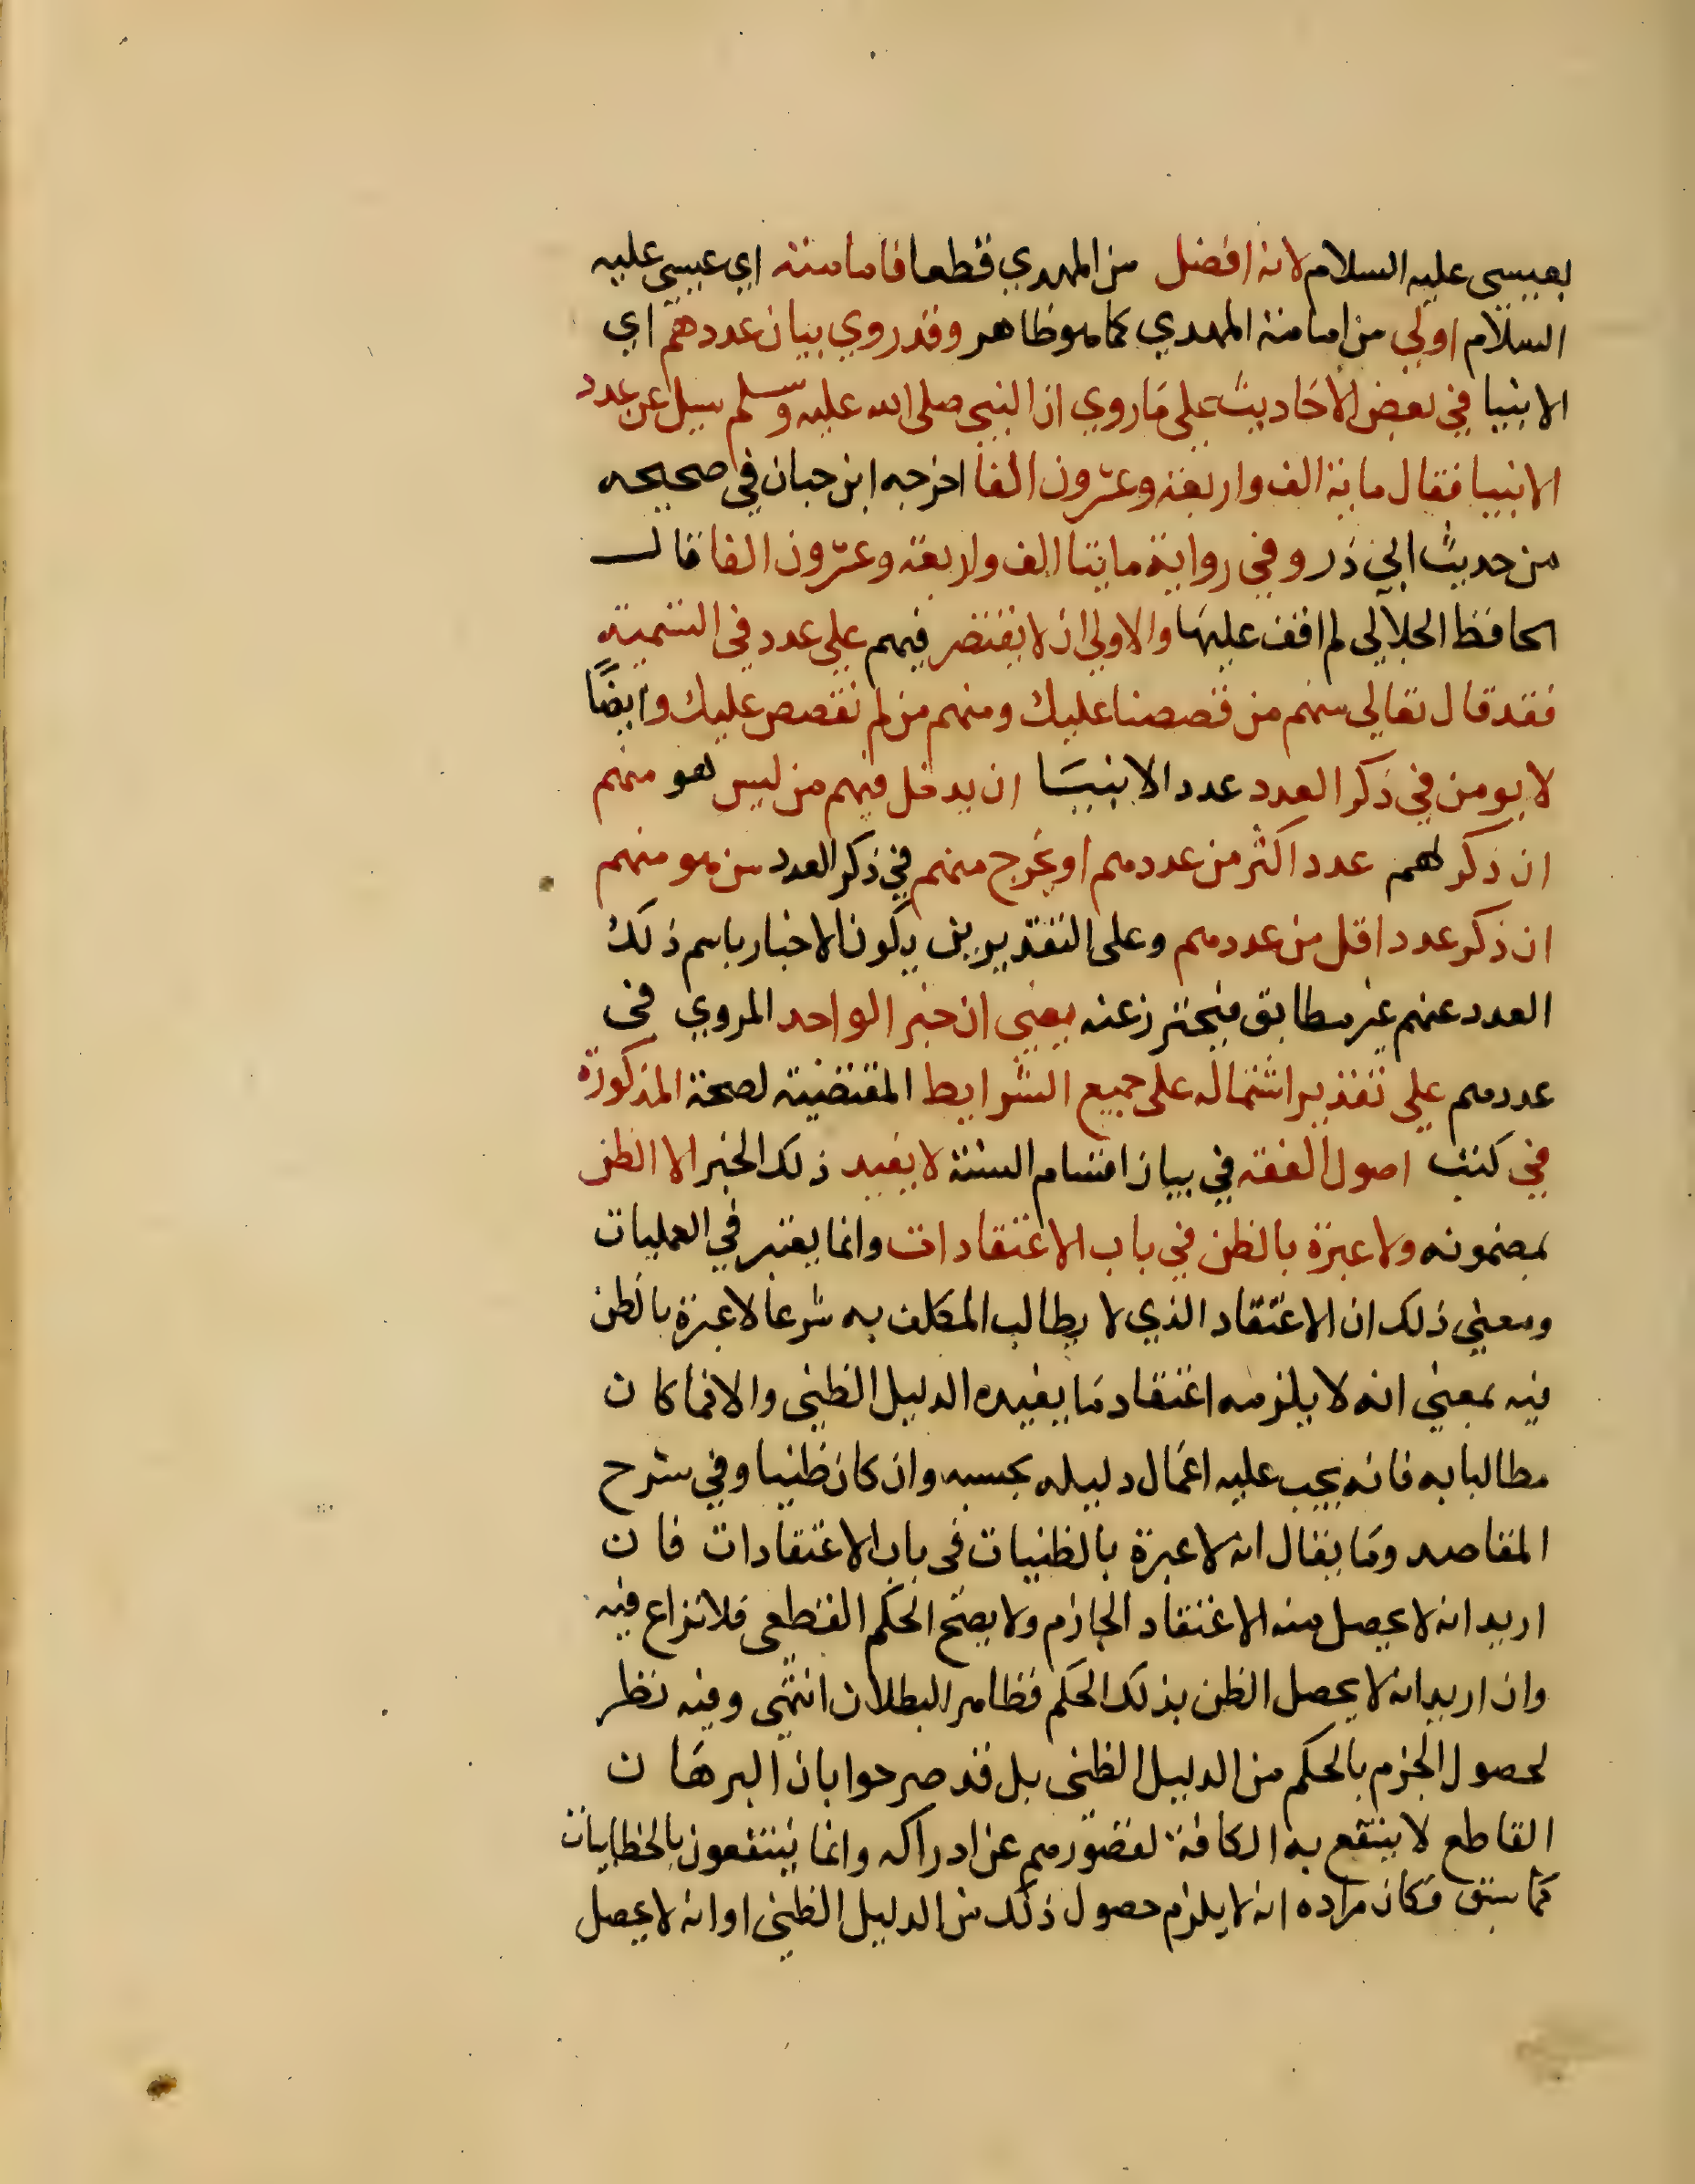 بعيسى عليه السلام لانه افضل من المهدي قطعا فامامته اي عيسى عليه
السلام اولي من امامة المهدي كما هو ظاهر وقد روي بيان عددهم اي
الانبيا في بعض الاحاديث علي ما روي ان النبي صلى الله عليه وسلم سيل عن عدد
الانبيا فقال ماية الف واربعة وعشرون الفا اخرجه ابن حبان في صحيحه
من حديث ابي ذر وفي رواية مايتا الف واربعة وعشرون الفا قال
الحافظ الجلالي لم اقف عليها والاولي ان لا يقتصر فيهم علي عدد في التسمية
فقد قال تعالي منهم من قصصنا عليك ومنهم من لم نقصص عليك وايضًا
لا يومن في ذكر العدد عدد الانبيا ان يدخل فيهم من ليس هو منهم
ان ذكر لهم عدد اكثر من عددهم او يخرج منهم في ذكر العدد من هو منهم
ان ذكر عدد اقل من عددهم وعلى التقديرين يكون الاخبار باسم ذلك
العدد عنهم غير مطابق فيحترز عنه يعني ان خبر الواحد المروي في
عددهم علي تقدير اشتماله على جميع الشرايط المقتضية لصحة المذكورة
في كتب اصول الفقه في بيان اقسام السنة لا يفيد ذلك الخبر الا الظن
بمضمونه ولا عبرة بالظن في باب الاعتقادات وانما يعتبر في العمليات
ومعني ذلك ان الاعتقاد الذي لا يطالب المكلف به شرعا لا عبرة بالظن
فيه بمعني انه لا يلزمه اعتقاد ما يفيده الدليل الظني والا فما كان
مطالبا به فانه يجب عليه اعمال دليله بحسبه وان كان ظنيا وفي شرح
المقاصد وما يقال انه لا عبرة بالظنيات في باب الاعتقادات فان
اريد انه لا يحصل منه الاعتقاد الجازم ولا يصح الحكم القطعي فلا نزاع فيه
وان اريد انه لا يحصل الظن بذلك الحكم فظاهر البطلان انتهى وفيه نظر
لحصول الجزم بالحكم من الدليل الظني بل قد صرحوا بان البرهان
القاطع لا ينتفع به الكافة لقصورهم عن ادراكه وانما ينتفعون بالخطابيات
كما سبق فكان مراده انه لا يلزم حصول ذلك من الدليل الظني او انه لا يحصل